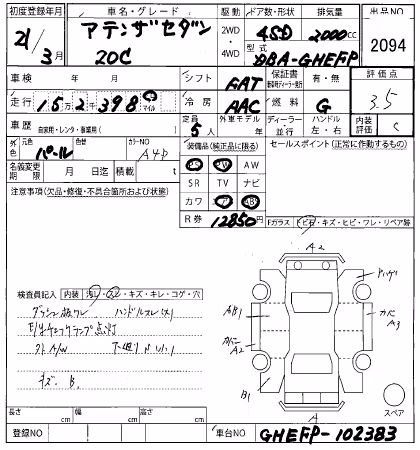 初度登録年月 車名・グレード 駆動 ドア数・形状 排気量 出品NO
21年 3月 アテンザセダン 20C 2WD・4WD 4SD 2000cc 2094
型式 DBA-GHEFP
車検 年 月 シフト FAT 保証書 有・無 評価点
走行 15万2千398 マイル 冷房 AAC 燃料 G 3.5
車歴 自家用・レンタ・事業用( ) 定員 5人 外車モデル 年 ディーラー・並行 ハンドル 左・右 内装評価 C
外色 元色 パール 色替 カラーNO A4D 装備品(純正品に限る) セールスポイント(正常に作動するもの)
名義変更期限 月 日迄 積載 t PS PW AW
注意事項(欠品・修復・不具合箇所および状態) SR TV ナビ
カワ AB
R券 12850円 Fガラス トビ石・キズ・ヒビ・ワレ・リペア跡
A2
検査員記入 内装 汚レ・スレ・キズ・キレ・コゲ・穴
ダッシュ板ワレ ハンドルスレ(大)
E/gチェックランプ点灯
キズ B.
AB1
A2
カバー A3
B1
A
スペア
長さ cm 幅 cm 高さ cm
登録NO 車台NO GHEFP-102383